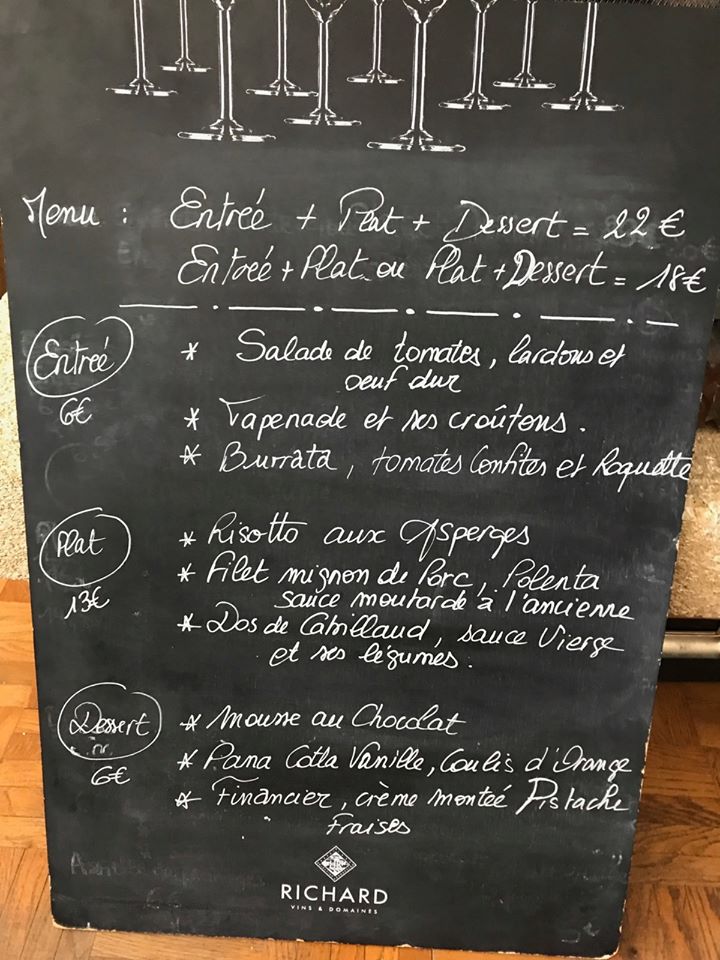 Menu : Entrée + Plat + Dessert = 22 €
Entrée + Plat ou Plat + Dessert = 18€
Entrée
6€
* Salade de tomates, lardons et
oeuf dur
* Tapenade et ses croûtons.
* Burrata, tomates Confites et Roquette
Plat
13€
* Risotto aux Asperges
* Filet mignon de Porc, Polenta
sauce moutarde à l'ancienne
* Dos de Cabillaud, sauce Vierge
et ses légumes.
Dessert
6€
* Mousse au Chocolat
* Pana Cotta Vanille, Coulis d'Orange
* Financier, crème monteé Pistache
Fraises
RICHARD
VINS & DOMAINES